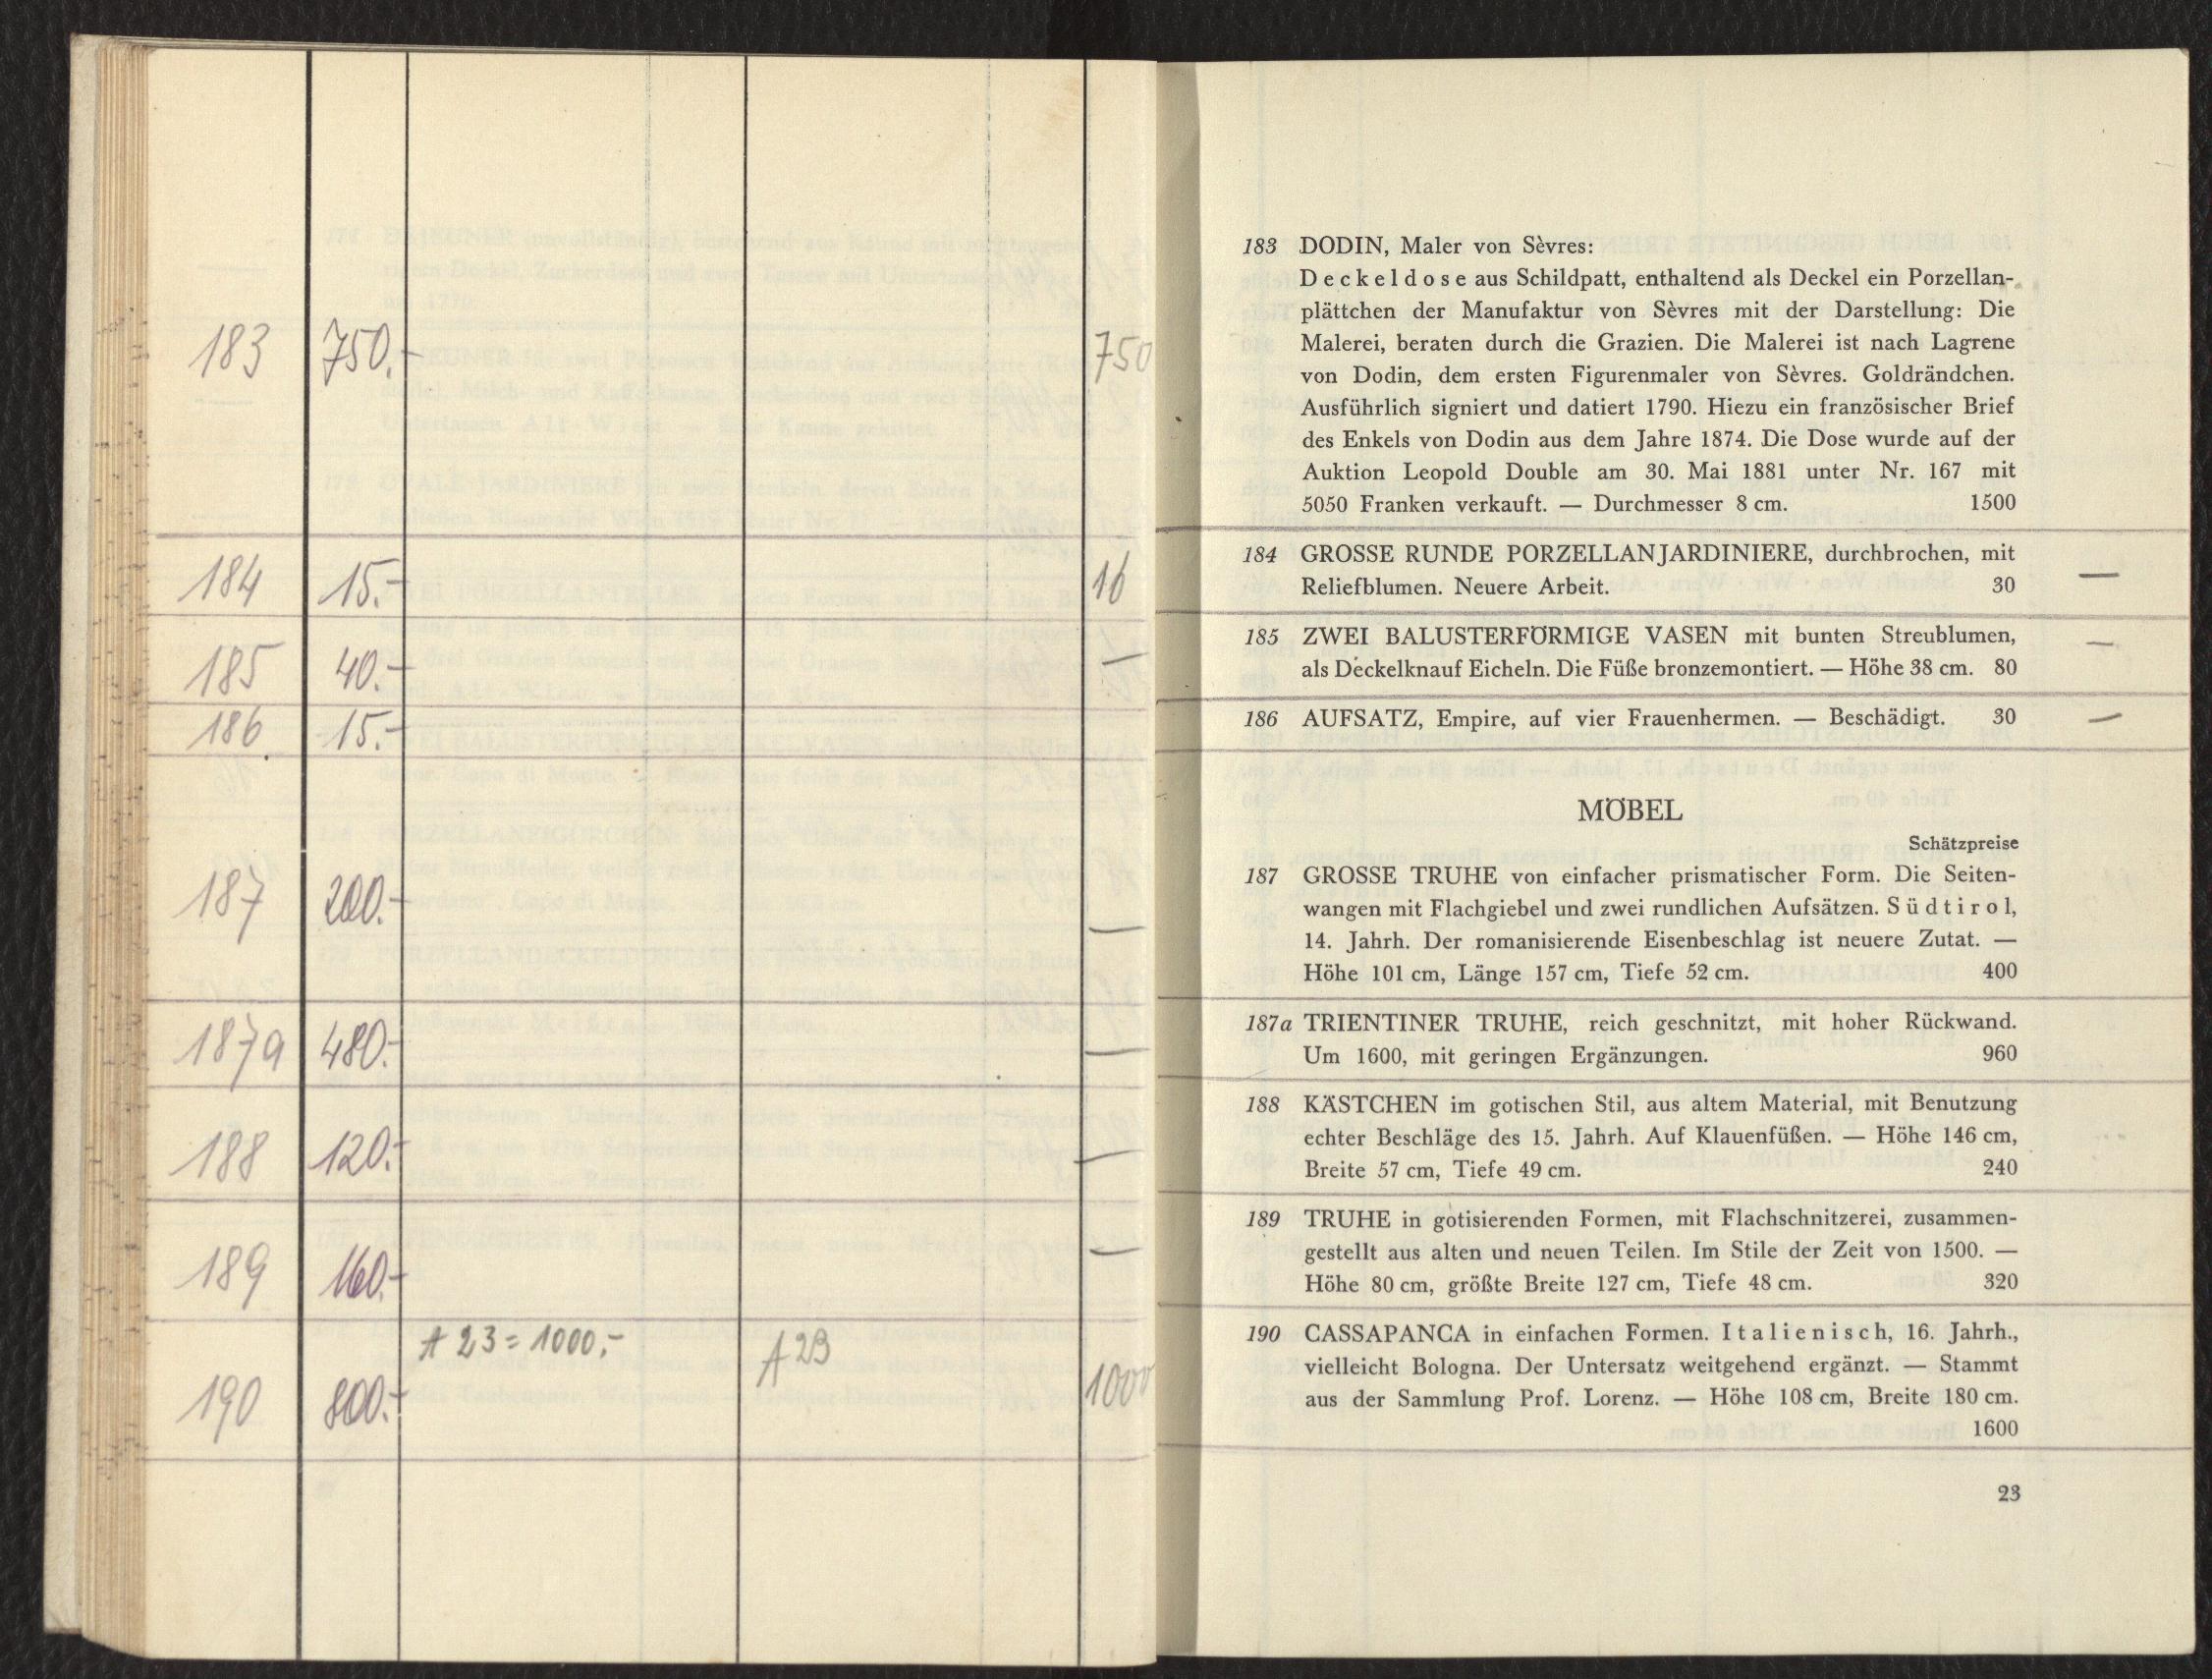 183 750.- 750
184 15.- 16
185 40.- —
186 15.-
187 200.- —
187a 480.- —
188 120.- —
189 160.- —
A 23 = 1000,- A 23
190 800.- 1000
183 DODIN, Maler von Sèvres:
Deckeldose aus Schildpatt, enthaltend als Deckel ein Porzellan-
plättchen der Manufaktur von Sèvres mit der Darstellung: Die
Malerei, beraten durch die Grazien. Die Malerei ist nach Lagrene
von Dodin, dem ersten Figurenmaler von Sèvres. Goldrändchen.
Ausführlich signiert und datiert 1790. Hiezu ein französischer Brief
des Enkels von Dodin aus dem Jahre 1874. Die Dose wurde auf der
Auktion Leopold Double am 30. Mai 1881 unter Nr. 167 mit
5050 Franken verkauft. — Durchmesser 8 cm. 1500
184 GROSSE RUNDE PORZELLANJARDINIERE, durchbrochen, mit
Reliefblumen. Neuere Arbeit. 30 —
185 ZWEI BALUSTERFÖRMIGE VASEN mit bunten Streublumen, —
als Deckelknauf Eicheln. Die Füße bronzemontiert. — Höhe 38 cm. 80
186 AUFSATZ, Empire, auf vier Frauenhermen. — Beschädigt. 30 —
MÖBEL
Schätzpreise
187 GROSSE TRUHE von einfacher prismatischer Form. Die Seiten-
wangen mit Flachgiebel und zwei rundlichen Aufsätzen. Südtirol,
14. Jahrh. Der romanisierende Eisenbeschlag ist neuere Zutat. —
Höhe 101 cm, Länge 157 cm, Tiefe 52 cm. 400
187a TRIENTINER TRUHE, reich geschnitzt, mit hoher Rückwand.
Um 1600, mit geringen Ergänzungen. 960
188 KÄSTCHEN im gotischen Stil, aus altem Material, mit Benutzung
echter Beschläge des 15. Jahrh. Auf Klauenfüßen. — Höhe 146 cm,
Breite 57 cm, Tiefe 49 cm. 240
189 TRUHE in gotisierenden Formen, mit Flachschnitzerei, zusammen-
gestellt aus alten und neuen Teilen. Im Stile der Zeit von 1500. —
Höhe 80 cm, größte Breite 127 cm, Tiefe 48 cm. 320
190 CASSAPANCA in einfachen Formen. Italienisch, 16. Jahrh.,
vielleicht Bologna. Der Untersatz weitgehend ergänzt. — Stammt
aus der Sammlung Prof. Lorenz. — Höhe 108 cm, Breite 180 cm.
1600
23